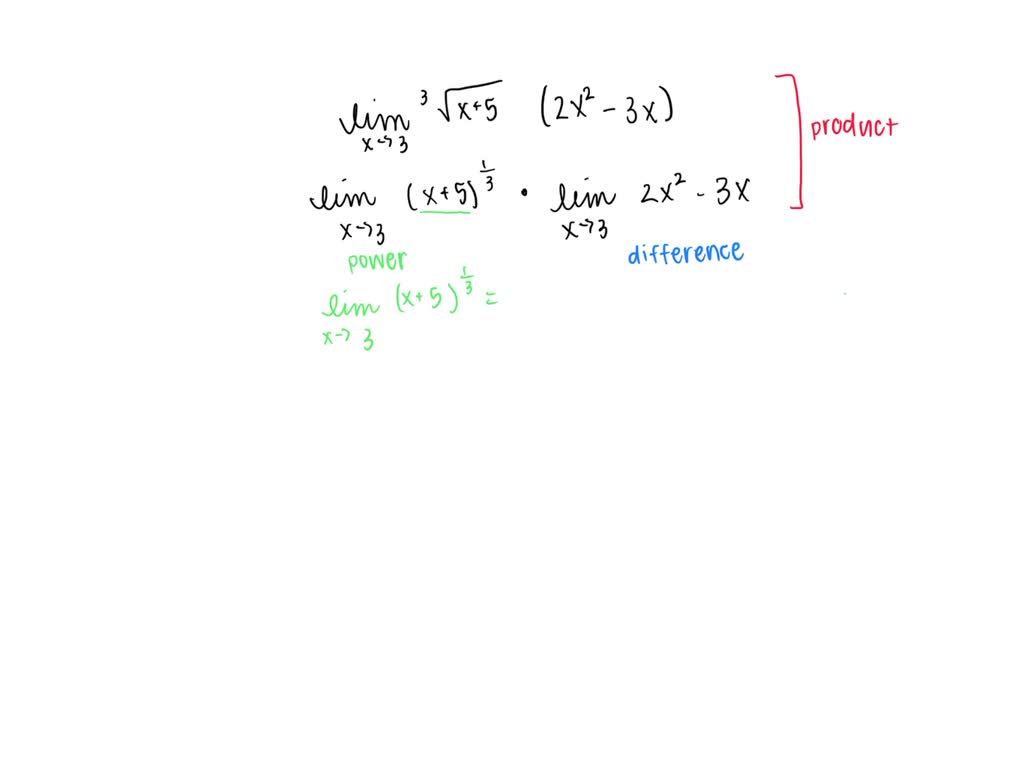 lim x→3 ³√x+5 (2x² - 3x)
product
lim x→3 (x+5)^(1/3) • lim x→3 2x² - 3x
power difference
lim x→3 (x+5)^(1/3) =